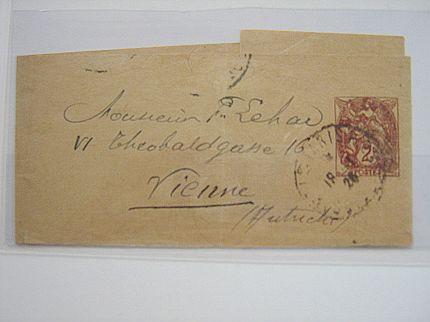 Monsieur F. Lehar
VI Theobaldgasse 16
Vienne
(Autriche)
2c
POSTES
18
26